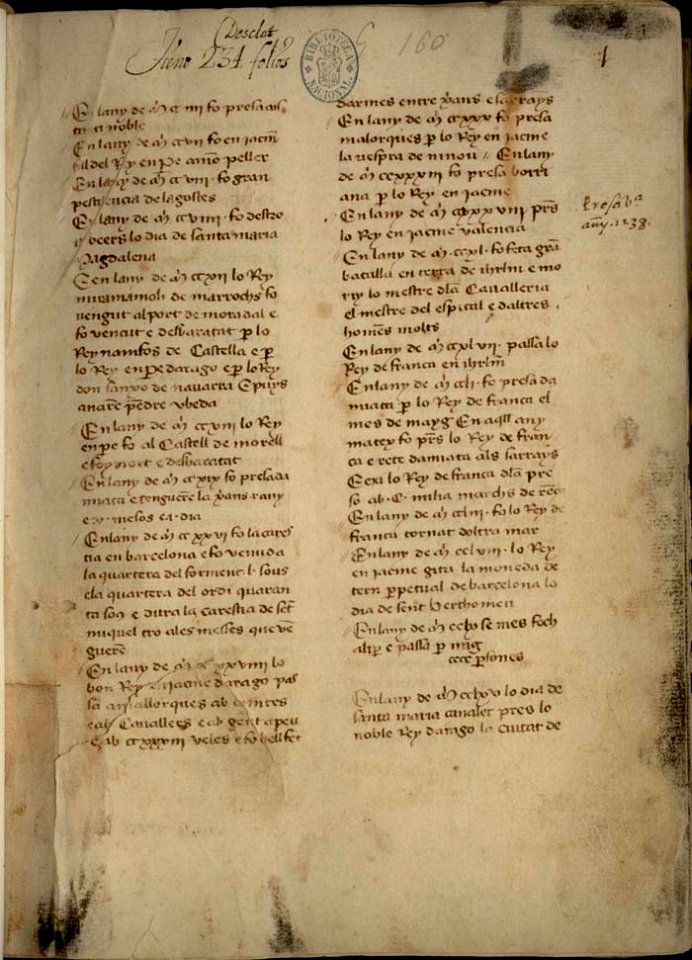 (Desclot
Tiene 234 folios
BIBLIOTECA NACIONAL
160
1
En lany de M CC IIII fo presa cos
tātinoble
En lany de M CC VII fo en jacm̄
fil del Rey en Pe
En lany de M CC VIII · fo gran
pestilencia de lagostes
En lany de M CC VIIII · fo destro
beers lo dia de santa maria
Magdalena
En lany de M CC XII lo Rey
miramamoli de marrochs fo
vengut al port de moradal e
fo vencut e desbaratat p̲ lo
Rey namfos de Castella e p̲
lo Rey en pe darago e p̲ lo Rey
don sanxo de navarra E puys
anarē pēdre ubeda
En lany de M CC XVIII lo Rey
en pe fo al Castell de morell
e foy mort e desbaratat
En lany de M CC XIX fo presa da
miata e tenguerē la x̄ans · I · any
e · X · mesos e · I · dia
En lany de M CC XXVI fo la cares
tia en barcelona e fo venuda
la quartera del forment · L · sous
e la quartera del ordi quaran
ta sos e dura la carestia de set̄
miquel tro a les messes que vē
guerē
En lany de M CC XXVIIII lo
bon Rey en jacme darago pas
sa a mallorques ab comtes
e ab Cavallers e ab gent a peu
e ab CC XXXIII veles e fo
darmes entre x̄ans e sarrays
En lany de M CC XXX fo presa
malorques p̲ lo Rey en jacme
la vespra de ninou En lany
de M CC XXXIII fo presa borri
ana p̲ lo Rey en jacme
En lany de M CC XXXVIII pr̄s
lo Rey en jacme valencia
En lany de M · CC XL · fo feta grā
batalla en terra de ihrlm̄ e mo
ry lo mestre dla Cavalleria
el mestre del espital e daltres
homēs molts
En lany de M CC XLVII · passa lo
Rey de franca en ihrlm̄
En lany de M CC LI · fo presa da
miata p̲ lo Rey de franca el
mes de mayg En aqll any
matex fo prēs lo Rey de fran
ca e rete damiata als sarrays
E exi lo Rey de franca dla pre
so ab · C · milia marchs de
En lany de M CC LIII · fo lo Rey de
franca tornat doltra mar
En lany de M CC LVIII · lo Rey
en jacme gita la moneda de
tern p̲petual de barcelona lo
dia de sent Berthomeu
En lany de M CC se mes foch
e passa p̲ mig
persones
En lany de M CC LXV lo dia de
santa maria canaler pres lo
noble Rey darago la ciutat de
Presa
any · 1238 ·